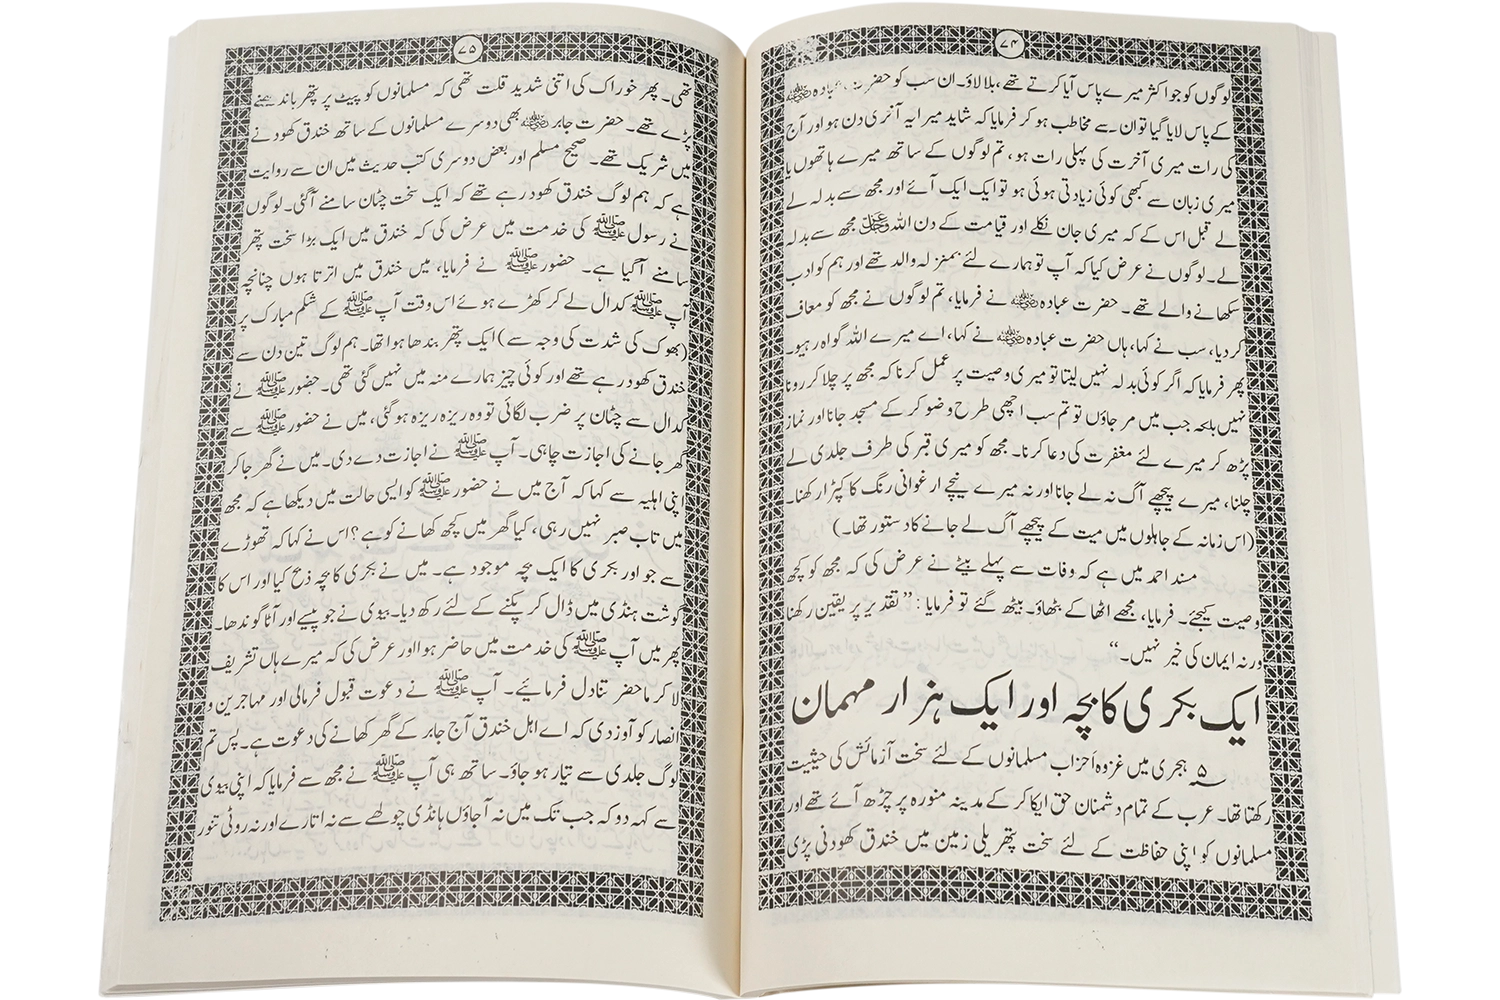 ۷۴
لوگوں کو جو اکثر میرے پاس آیا کرتے تھے، بلا لاؤ۔ ان سب کو حضرت عبادہ رضی اللہ عنہ
کے پاس لایا گیا تو ان سے مخاطب ہو کر فرمایا کہ شاید میرا یہ آخری دن ہو اور آج
کی رات میری آخرت کی پہلی رات ہو، تم لوگوں کے ساتھ میرے ہاتھوں یا
میری زبان سے کبھی کوئی زیادتی ہوئی ہو تو ایک ایک آئے اور مجھ سے بدلہ لے
لے قبل اس کے کہ میری جان نکلے اور قیامت کے دن اللہ عزوجل مجھ سے بدلہ
لے۔ لوگوں نے عرض کیا کہ آپ تو ہمارے لئے بمنزلہ والد تھے اور ہم کو ادب
سکھانے والے تھے۔ حضرت عبادہ رضی اللہ عنہ نے فرمایا، تم لوگوں نے مجھ کو معاف
کر دیا، سب نے کہا، ہاں حضرت عبادہ رضی اللہ عنہ نے کہا، اے میرے اللہ گواہ رہیو۔
پھر فرمایا کہ اگر کوئی بدلہ نہیں لیتا تو میری وصیت پر عمل کرنا کہ مجھ پر چلا کر رونا
نہیں بلحہ جب میں مر جاؤں تو تم سب اچھی طرح وضو کر کے مسجد جانا اور نماز
پڑھ کر میرے لئے مغفرت کی دعا کرنا۔ مجھ کو میری قبر کی طرف جلدی لے
چلنا، میرے پیچھے آگ نہ لے جانا اور نہ میرے نیچے ارغوانی رنگ کا کپڑا رکھنا۔
(اس زمانہ کے جاہلوں میں میت کے پیچھے آگ لے جانے کا دستور تھا۔)
مسند احمد میں ہے کہ وفات سے پہلے بیٹے نے عرض کی کہ مجھ کو کچھ
وصیت کیجئے۔ فرمایا، مجھے اٹھا کے بٹھاؤ۔ بیٹھ گئے تو فرمایا: ”تقدیر پر یقین رکھنا
ورنہ ایمان کی خیر نہیں۔“
ایک بکری کا بچہ اور ایک ہزار مہمان
۵ ہجری میں غزوہ اَحزاب مسلمانوں کے لئے سخت آزمائش کی حیثیت
رکھتا تھا۔ عرب کے تمام دشمنان حق ایکا کر کے مدینہ منورہ پر چڑھ آئے تھے اور
مسلمانوں کو اپنی حفاظت کے لئے سخت پتھریلی زمین میں خندق کھودنی پڑی
۷۵
تھی۔ پھر خوراک کی اتنی شدید قلت تھی کہ مسلمانوں کو پیٹ پر پتھر باندھنے
پڑے تھے۔ حضرت جابر رضی اللہ عنہ بھی دوسرے مسلمانوں کے ساتھ خندق کھودنے
میں شریک تھے۔ صحیح مسلم اور بعض دوسری کتب حدیث میں ان سے روایت
ہے کہ ہم لوگ خندق کھود رہے تھے کہ ایک سخت چٹان سامنے آگئی۔ لوگوں
نے رسول ﷺ کی خدمت میں عرض کی کہ خندق میں ایک بڑا سخت پتھر
سامنے آگیا ہے۔ حضور ﷺ نے فرمایا، میں خندق میں اترتا ہوں چنانچہ
آپ ﷺ کدال لے کر کھڑے ہوئے اس وقت آپ ﷺ کے شکم مبارک پر
(بھوک کی شدت کی وجہ سے) ایک پتھر بندھا ہوا تھا۔ ہم لوگ تین دن سے
خندق کھود رہے تھے اور کوئی چیز ہمارے منہ میں نہیں گئی تھی۔ حضور ﷺ نے
کدال سے چٹان پر ضرب لگائی تو وہ ریزہ ریزہ ہو گئی، میں نے حضور ﷺ سے
گھر جانے کی اجازت چاہی۔ آپ ﷺ نے اجازت دے دی۔ میں نے گھر جا کر
اپنی اہلیہ سے کہا کہ آج میں نے حضور ﷺ کو ایسی حالت میں دیکھا ہے کہ مجھ
میں تاب صبر نہیں رہی، کیا گھر میں کچھ کھانے کو ہے؟ اس نے کہا کہ تھوڑے
سے جو اور بکری کا ایک بچہ موجود ہے۔ میں نے بکری کا بچہ ذبح کیا اور اس کا
گوشت ہنڈی میں ڈال کر پکنے کے لئے رکھ دیا۔ بیوی نے جو پیسے اور آٹا گوندھا۔
پھر میں آپ ﷺ کی خدمت میں حاضر ہوا اور عرض کی کہ میرے ہاں تشریف
لا کر ماحضر تناول فرمائیے۔ آپ ﷺ نے دعوت قبول فرمالی اور مہاجرین و
انصار کو آوز دی کہ اے اہل خندق آج جابر کے گھر کھانے کی دعوت ہے۔ پس تم
لوگ جلدی سے تیار ہو جاؤ۔ ساتھ ہی آپ ﷺ نے مجھ سے فرمایا کہ اپنی بیوی
سے کہہ دو کہ جب تک میں نہ آجاؤں ہانڈی چولھے سے نہ اتارے اور نہ روٹی تنور